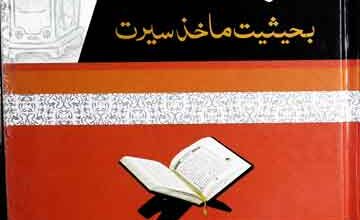 بحیثیت ماخذ سیرت